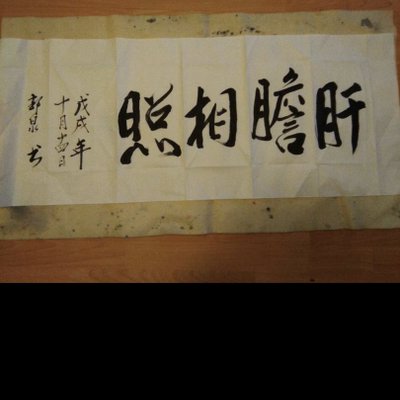 肝膽相照
戊戌年
十月十四日
郭泉书